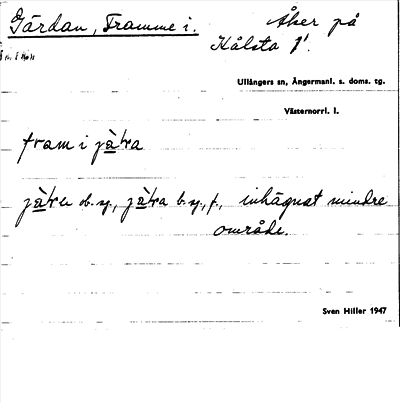 Gärdan, Framme i.
Åker på
Kålsta 1¹.
Ullångers sn, Ångermanl. s. doms. tg.
Västernorrl. l.
fram i jàḷra
jàḷru ob. sg., jàḷra b. sg., f., inhägnat mindre
område.
Sven Hiller 1947